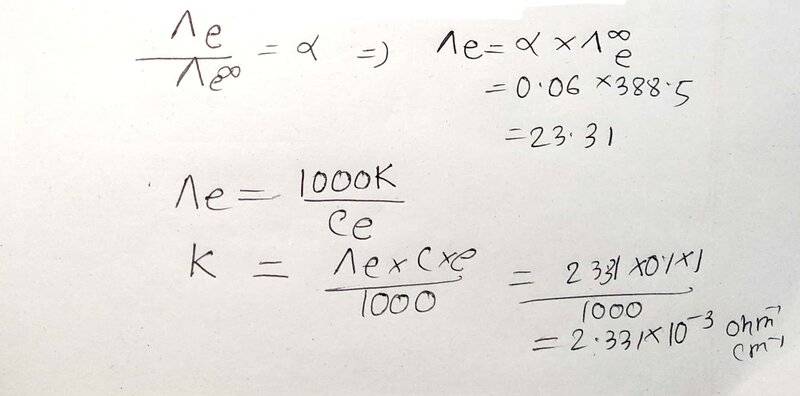 Λe / Λe∞ = α => Λe = α × Λe∞
= 0.06 × 388.5
= 23.31
Λe = 1000K / Ce
K = Λe × C × e / 1000 = 2331 × 0.1 × 1 / 1000
= 2.331 × 10⁻³ ohm⁻¹ cm⁻¹